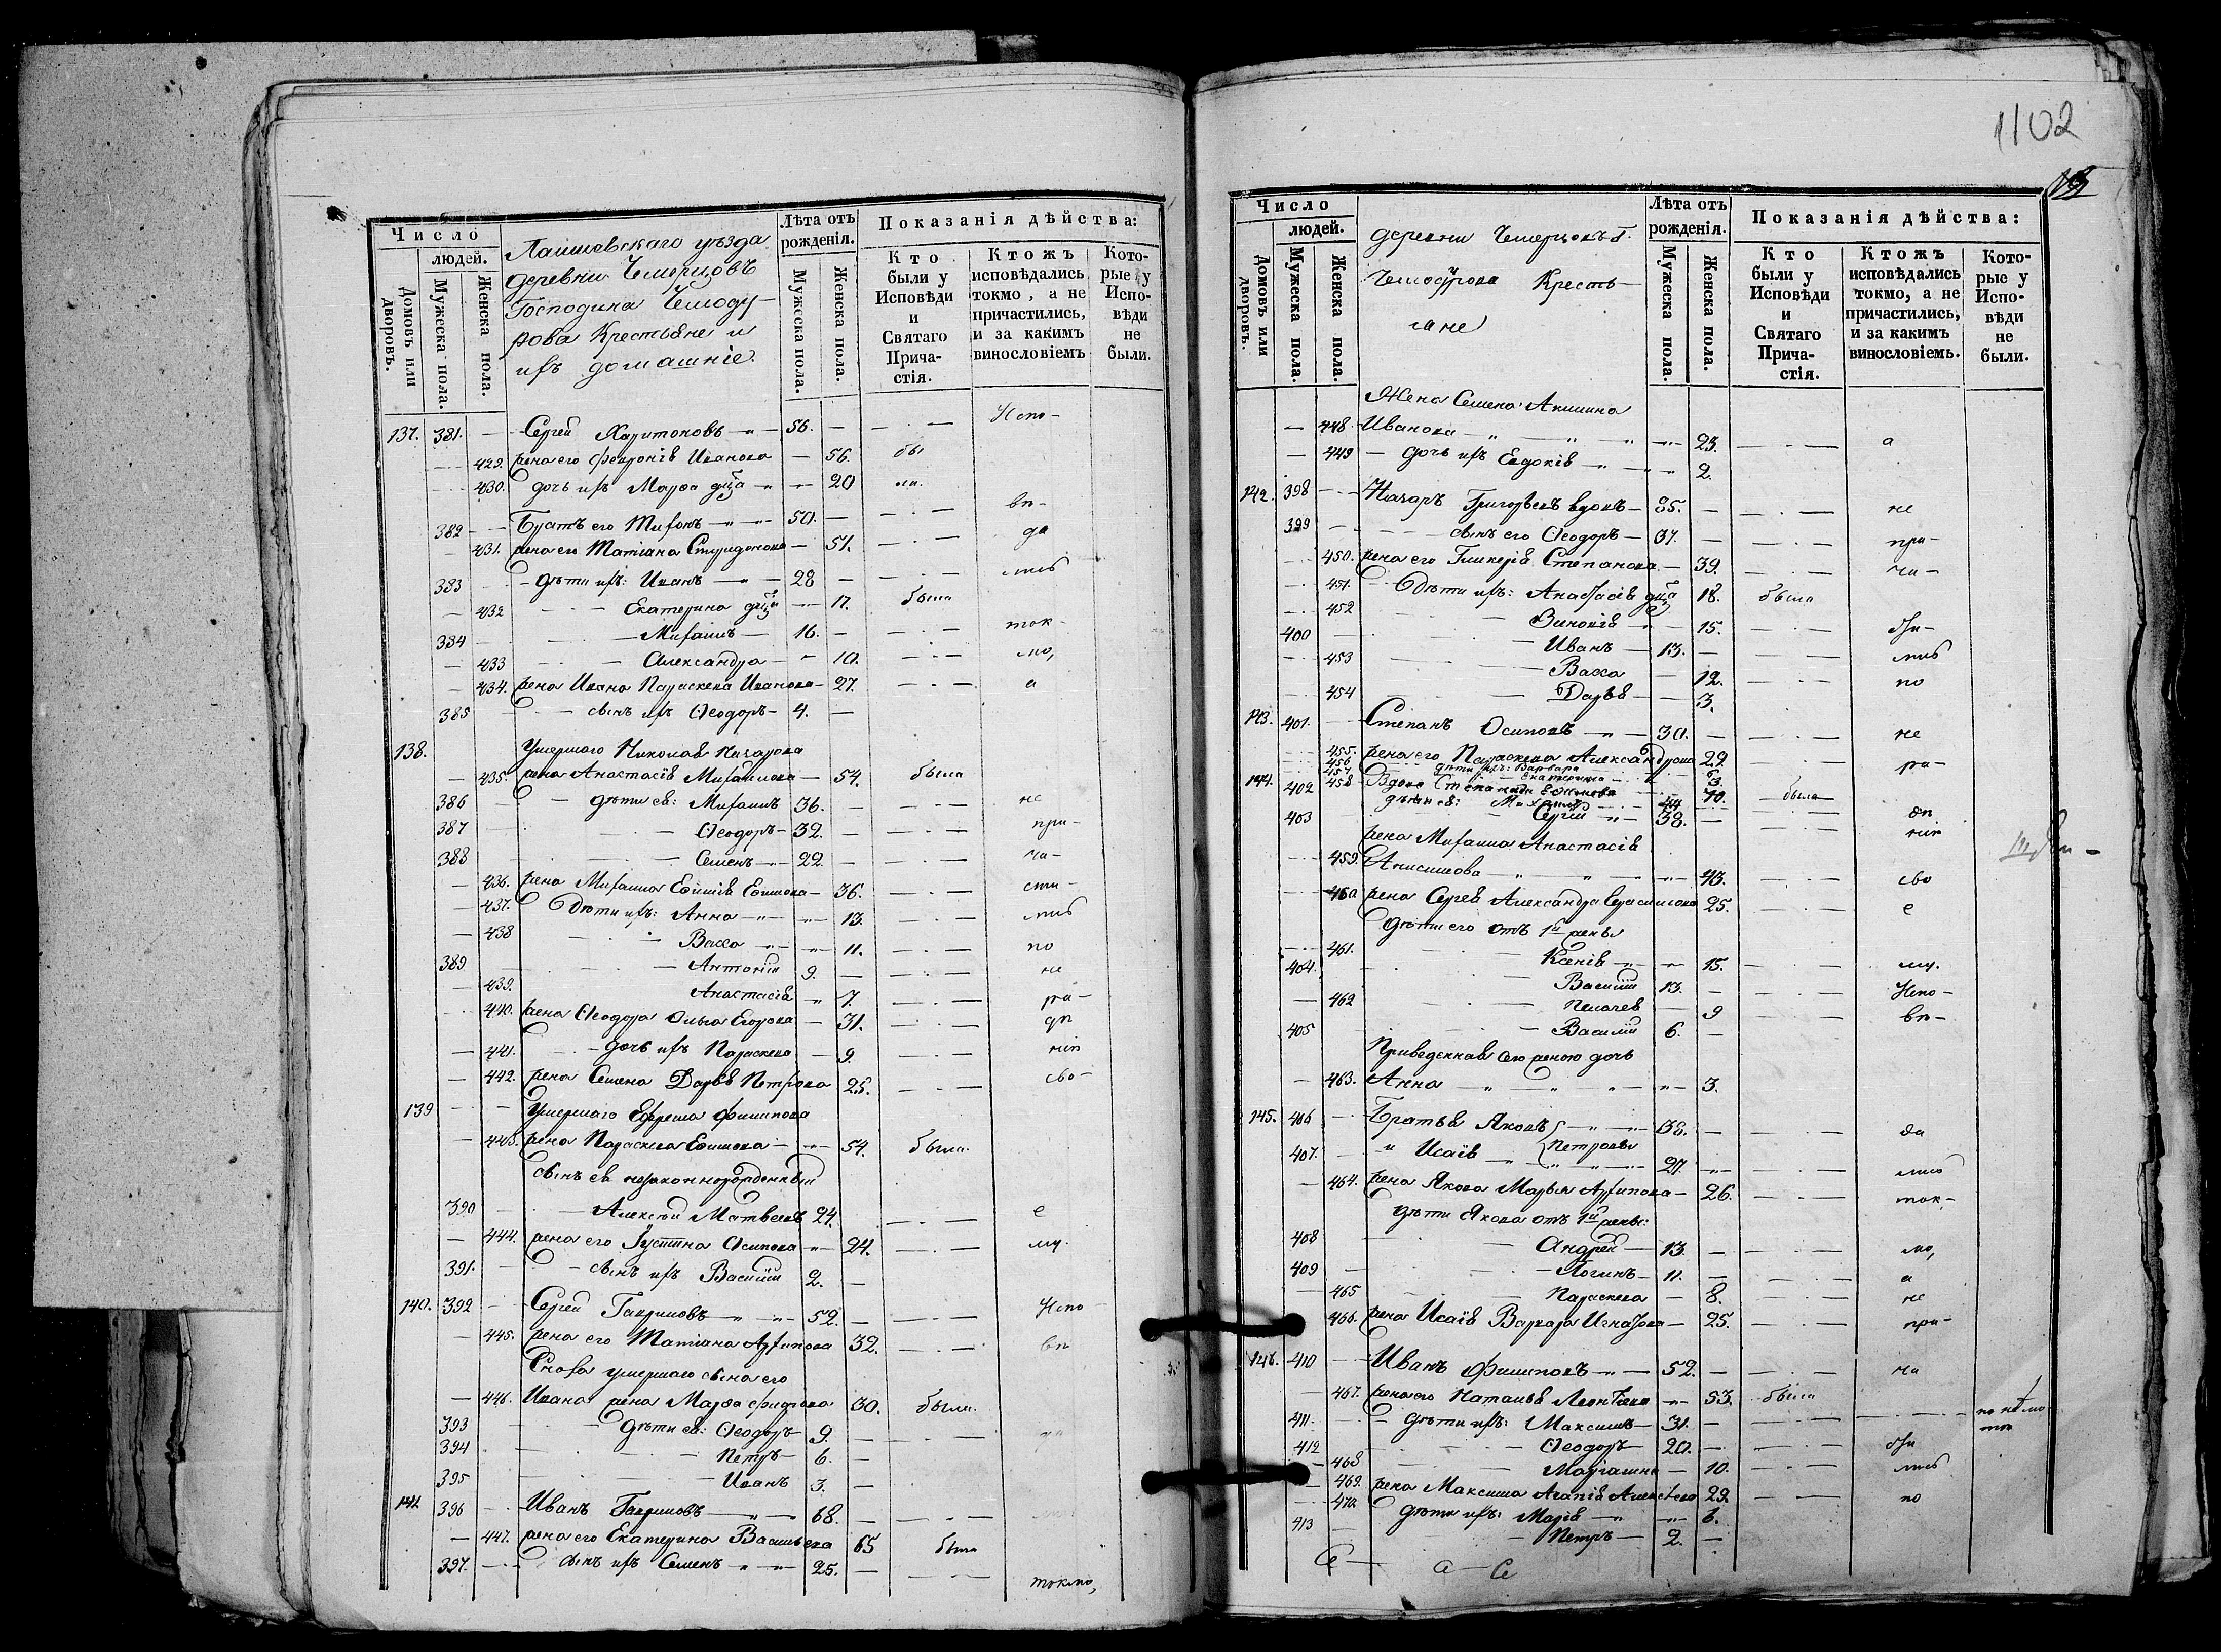 Число
людей.
Домовъ или дворовъ.
Мужеска пола.
Женска пола.
Лаишевскаго уѣзда
деревни Чемерцовъ
Господина Чемоду-
рова Крестьяне и
ихъ домашніе.
Лѣта отъ рожденія.
Мужеска пола.
Женска пола.
Показанія дѣйства:
Кто были у Исповѣди и Святаго Прича-стія.
Ктожъ исповѣдались токмо, а не причастились, и за какимъ винословіемъ
Кото-рые у Испо-вѣди не были.
137. 381. Сергей Харитоновъ 56. Испо-
429. жена его Феѵронія Иванова 56. бы
430. дочь ихъ Марѳа дѣца 20 ли.
382 Братъ его Тихонъ 50. вѣ-
431. жена его Татіана Спиридонова 51. да
383 дѣти ихъ: Иванъ 28 лись
432 Екатерина дѣца 17. была
384 Михаилъ 16. ток-
433 Александра 10. мо,
434. жена Ивана Параскева Иванова 27. а
385 сынъ ихъ Ѳеодоръ 4.
138. Умершаго Николая Назарова
435. жена Анастасія Михайлова 54. была
386 дѣти ея: Михаилъ 36. не
387 Ѳеодоръ 32. при-
388 Семенъ 22. ча-
436. жена Михаила Евѳимія Ефимова 36. сти-
437. Дѣти ихъ: Анна 13. лись
438 Васса 11. по
389 Антоній 9. не
439. Анастасія 7. ра-
440. жена Ѳеодора Ольга Егорова 31. дѣ
441. дочь ихъ Параскева 9. нію
442. жена Семена Дарья Петрова 25. сво-
139 Умершаго Ефрема Филипова
443. жена Параскева Ефимова 54. была.
сынъ ея незаконнорожденный
390 Алексѣй Матвеевъ 24. е
444. жена его Іустина Осипова 24. му.
391. сынъ ихъ Василій 2.
140. 392 Сергей Гавриловъ 52. Испо-
445. жена его Татіана Архипова 32. вѣ
Сноха умершаго сына его
446. Ивана жена Марѳа 30. была.
393 дѣти ея: Ѳеодоръ 9.
394 Петръ 6.
395 Иванъ 3.
141 396 Иванъ Гавриловъ 68.
447. жена его Екатерина Васильева 65 была
397. сынъ ихъ Семенъ 25. токмо,
1102
Число
людей.
Домовъ или дворовъ.
Мужеска пола.
Женска пола.
деревни Чемерцовъ Г.
Чемодурова Кресть-
яне
Лѣта отъ рожденія.
Мужеска пола.
Женска пола.
Показанія дѣйства:
Кто были у Исповѣди и Святаго Прича-стія.
Ктожъ исповѣдались токмо, а не причастились, и за какимъ винословіемъ.
Кото-рые у Испо-вѣди не были.
Жена Семена Акилина
448. Иванова 23. а
449 дочь ихъ Евдокія 2.
142. 398 Назаръ Григорьевъ вдовъ 85. не
399 сынъ его Ѳеодоръ 37. при-
450. жена его Гликерія Степанова 39. ча-
451. Дѣти ихъ: Анастасія дѣца 18. была
452 Зиновія 15. сти-
400 Иванъ 13. лись
453 Васса 12. по
454 Дарья 3.
143. 401. Степанъ Осиповъ 30. не
455. жена его Параскева Александрова 29. ра-
456 дѣти ихъ: Варвара 6.
457 Екатерина 3.
144. 458 Вдова Степанида Ефимова 70. была
402 дѣти ея: Михаилъ 44. дѣ
403 Сергій 38. нію
жена Михаила Анастасія
459. Анисимова 43. сво
460 жена Сергея Александра Герасимова 25. е
Дѣти его отъ 1й жены
461. Ксенія 15. му.
404. Василій 13. Испо-
462 Пелагея 9 вѣ-
405 Василій 6.
Приведенная сею женою дочь
463. Анна 3.
145. 406 Братья Яковъ 38. да
407. и Исаія Петровы 27. лись
464. жена Якова Марья Архипова 26. ток-
дѣти Якова отъ 1й жены:
408 Андрей 13. мо,
409 Логинъ 11. а
465 Параскева 8. не
466. жена Исаія Варвара Игнатова 25. при-
146. 410 Иванъ Филиповъ 52. ча
467. жена его Наталья Леонтьева 53. была
411. дѣти ихъ: Максимъ 31.
412 Ѳеодоръ 20. сти
468 Маріамна 10. лись
469. жена Максима Агапія Алексѣева 29. по
470. дѣти ихъ: Марія 6.
413 Петръ 2.